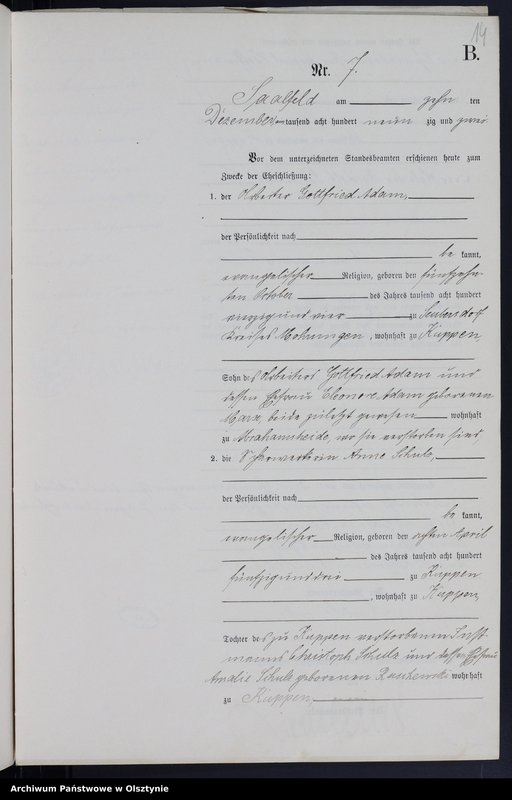 14
B.
Nr. 7.
Saalfeld am zehn ten
Dezember tausend acht hundert neun zig und zwei
Vor dem unterzeichneten Standesbeamten erschienen heute zum
Zwecke der Eheschließung:
1. der Arbeiter Gottfried Adam,
der Persönlichkeit nach
be kannt,
evangelischer Religion, geboren den fünfzehn
ten October des Jahres tausend acht hundert
vierzig und vier zu
Kreises Mohrungen, wohnhaft zu Kuppen
Sohn des Arbeiters Gottfried Adam und
dessen Ehefrau Eleonore Adam geborenen
beide zuletzt gewesen wohnhaft
zu Abrahamsheide, wo sie verstorben sind
2. die Anne Schulz,
der Persönlichkeit nach
be kannt,
evangelischer Religion, geboren den achten April
des Jahres tausend acht hundert
fünfzig und drei zu Kuppen
, wohnhaft zu Kuppen,
Tochter des zu Kuppen verstorbenen Inst-
manns Christoph Schulz und dessen Ehefrau
Amalie Schulz geborenen wohnhaft
zu Kuppen,
Archiwum Państwowe w Olsztynie